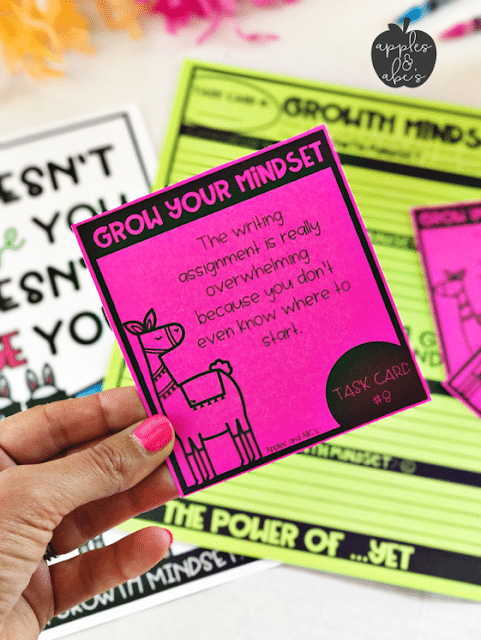 apples
&
abc's
TASK CARD #
GROWTH MINDS
GROW YOUR MINDSET
The writing
assignment is really
overwhelming
because you don't
even know where to
start.
TASK CARD
#8
Apples and ABC's
ESN'T
YOU
ESN'T
YO
TH MINDSET
THE POWER OF ...YET
GROWTH MINDSET